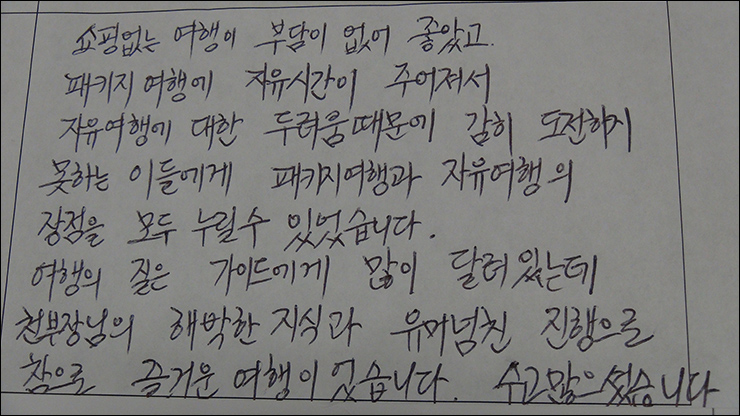 쇼핑없는 여행이 부담이 없어 좋았고.
패키지여행에 자유시간이 주어져서
자유여행에 대한 두려움때문에 감히 도전하지
못하는 이들에게 패키지여행과 자유여행의
장점을 모두 누릴수 있었습니다.
여행의 질은 가이드에게 많이 달려있는데
천부장님의 해박한 지식과 유머넘친 진행으로
참으로 즐거운 여행이었습니다. 수고많으셨습니다